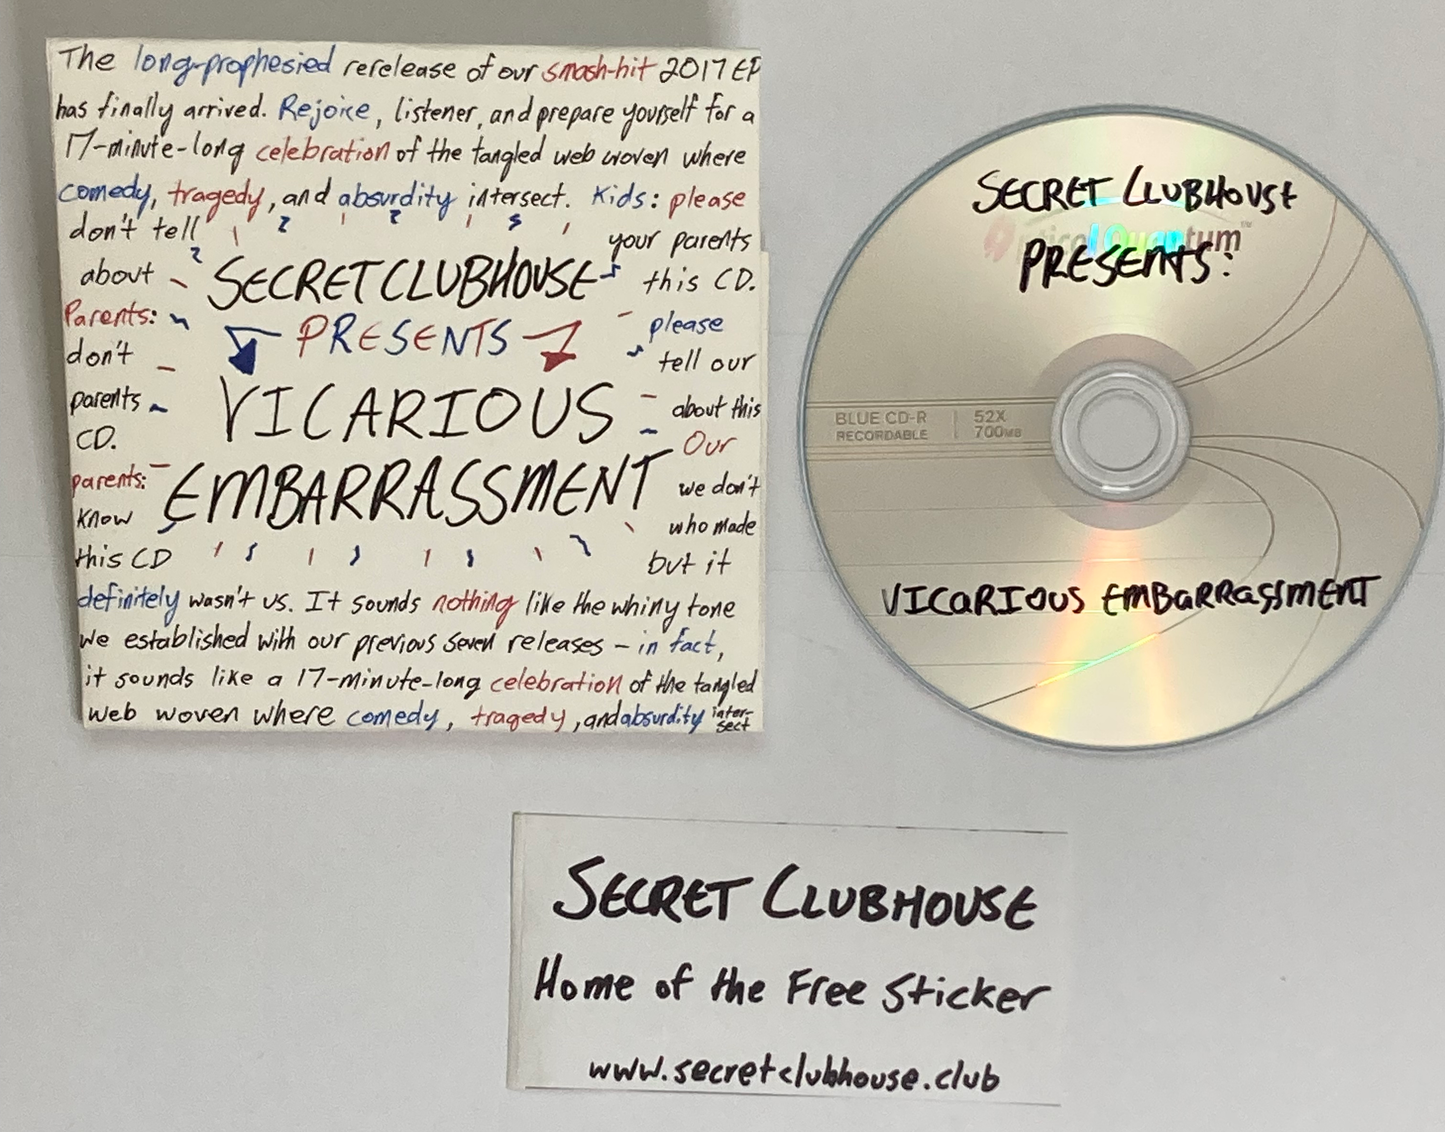 The long-prophesied rerelease of our smash-hit 2017 EP
has finally arrived. Rejoice, listener, and prepare yourself for a
17-minute-long celebration of the tangled web woven where
comedy, tragedy, and absurdity intersect. Kids: please
don't tell your parents
about this CD.
Parents: please
don't tell our
parents about this
CD. Our
parents: we don't
know who made
this CD but it
definitely wasn't us. It sounds nothing like the whiny tone
we established with our previous seven releases – in fact,
it sounds like a 17-minute-long celebration of the tangled
web woven where comedy, tragedy, and absurdity inter-
sect
SECRET CLUBHOUSE
PRESENTS
VICARIOUS
EMBARRASSMENT
SECRET CLUBHOUSE
PRESENTS:
OpticalQuantum™
BLUE CD-R 52X
RECORDABLE 700MB
VICARIOUS EMBARRASSMENT
SECRET CLUBHOUSE
Home of the Free Sticker
www.secretclubhouse.club